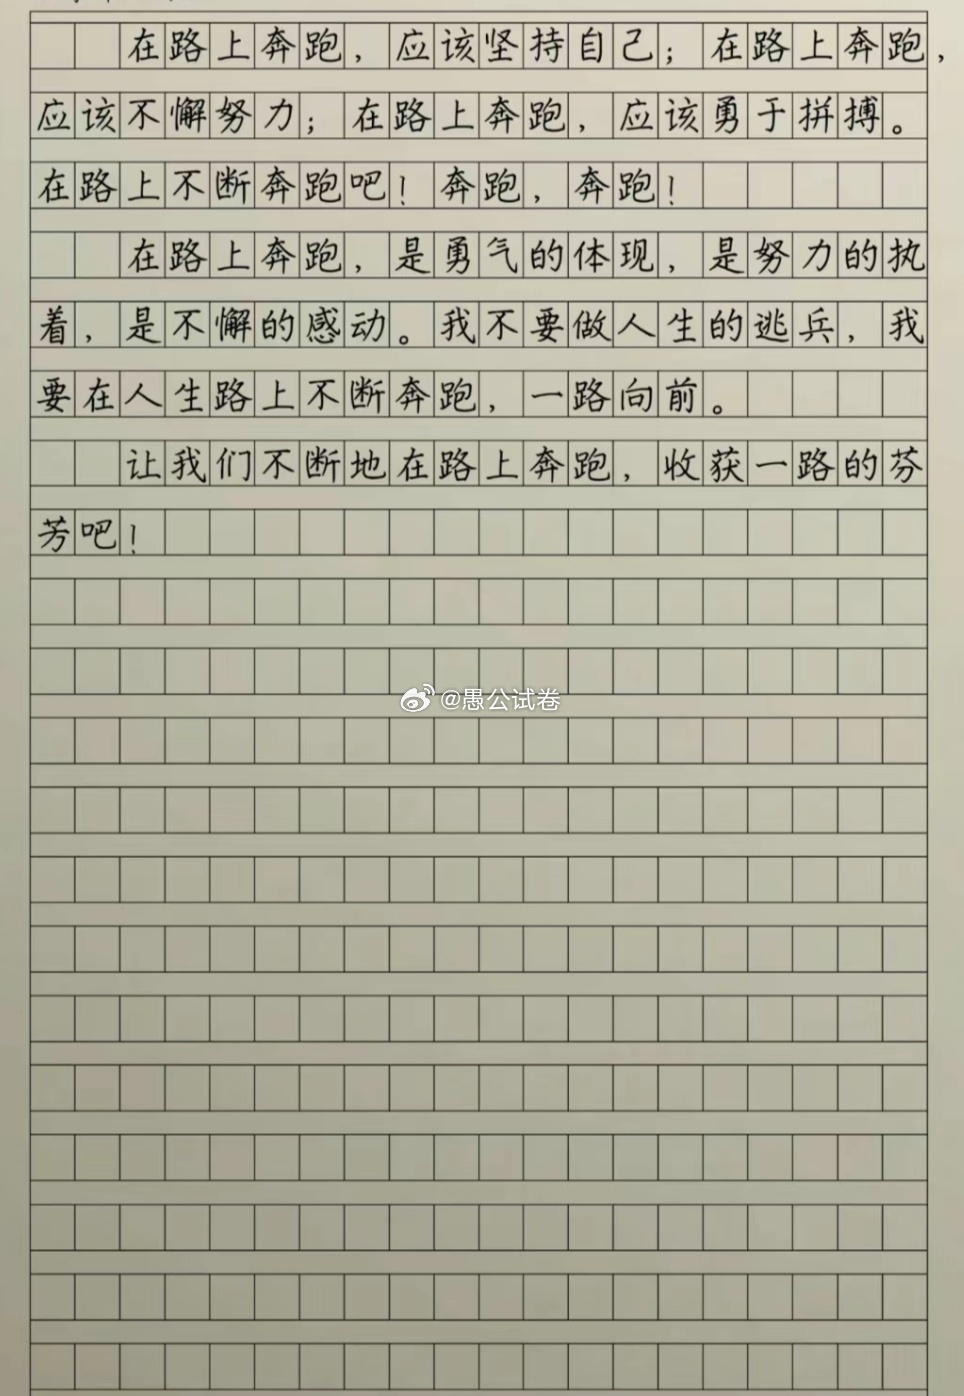 在路上奔跑，应该坚持自己；在路上奔跑，
应该不懈努力；在路上奔跑，应该勇于拼搏。
在路上不断奔跑吧！奔跑，奔跑！
在路上奔跑，是勇气的体现，是努力的执
着，是不懈的感动。我不要做人生的逃兵，我
要在人生路上不断奔跑，一路向前。
让我们不断地在路上奔跑，收获一路的芬
芳吧！
@愚公试卷